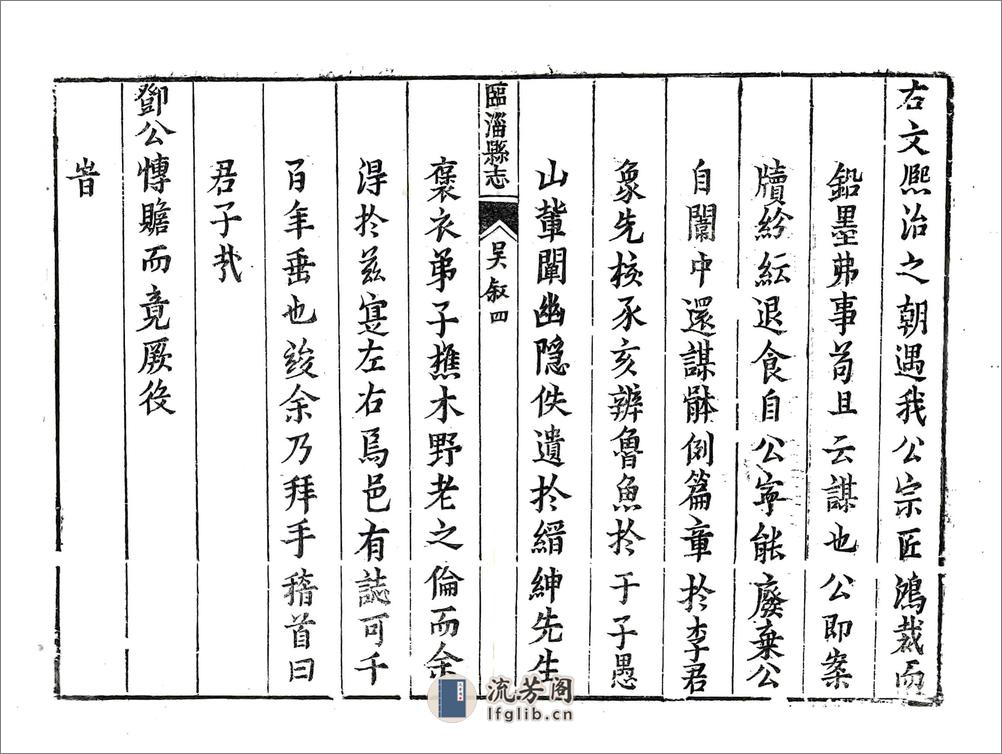 右文熈治之朝遇我公宗匠鴻裁而
鉛墨弗事苟且云謀也公即案
牘紛紜退食自公寧能廢棄公
自闈中還謀骵例篇章於李君
象先校豕亥辨魯魚於于子愚
山輩闡幽隐佚遺於縉紳先生
臨淄縣志
吴叙四
襃衣弟子樵木野老之倫而余
淂於兹寔左右焉邑有誌可千
百年垂也竣余乃拜手稽首曰
君子㦲
鄧公慱贍而竟厥役
旹
流芳阁
lfglib.cn